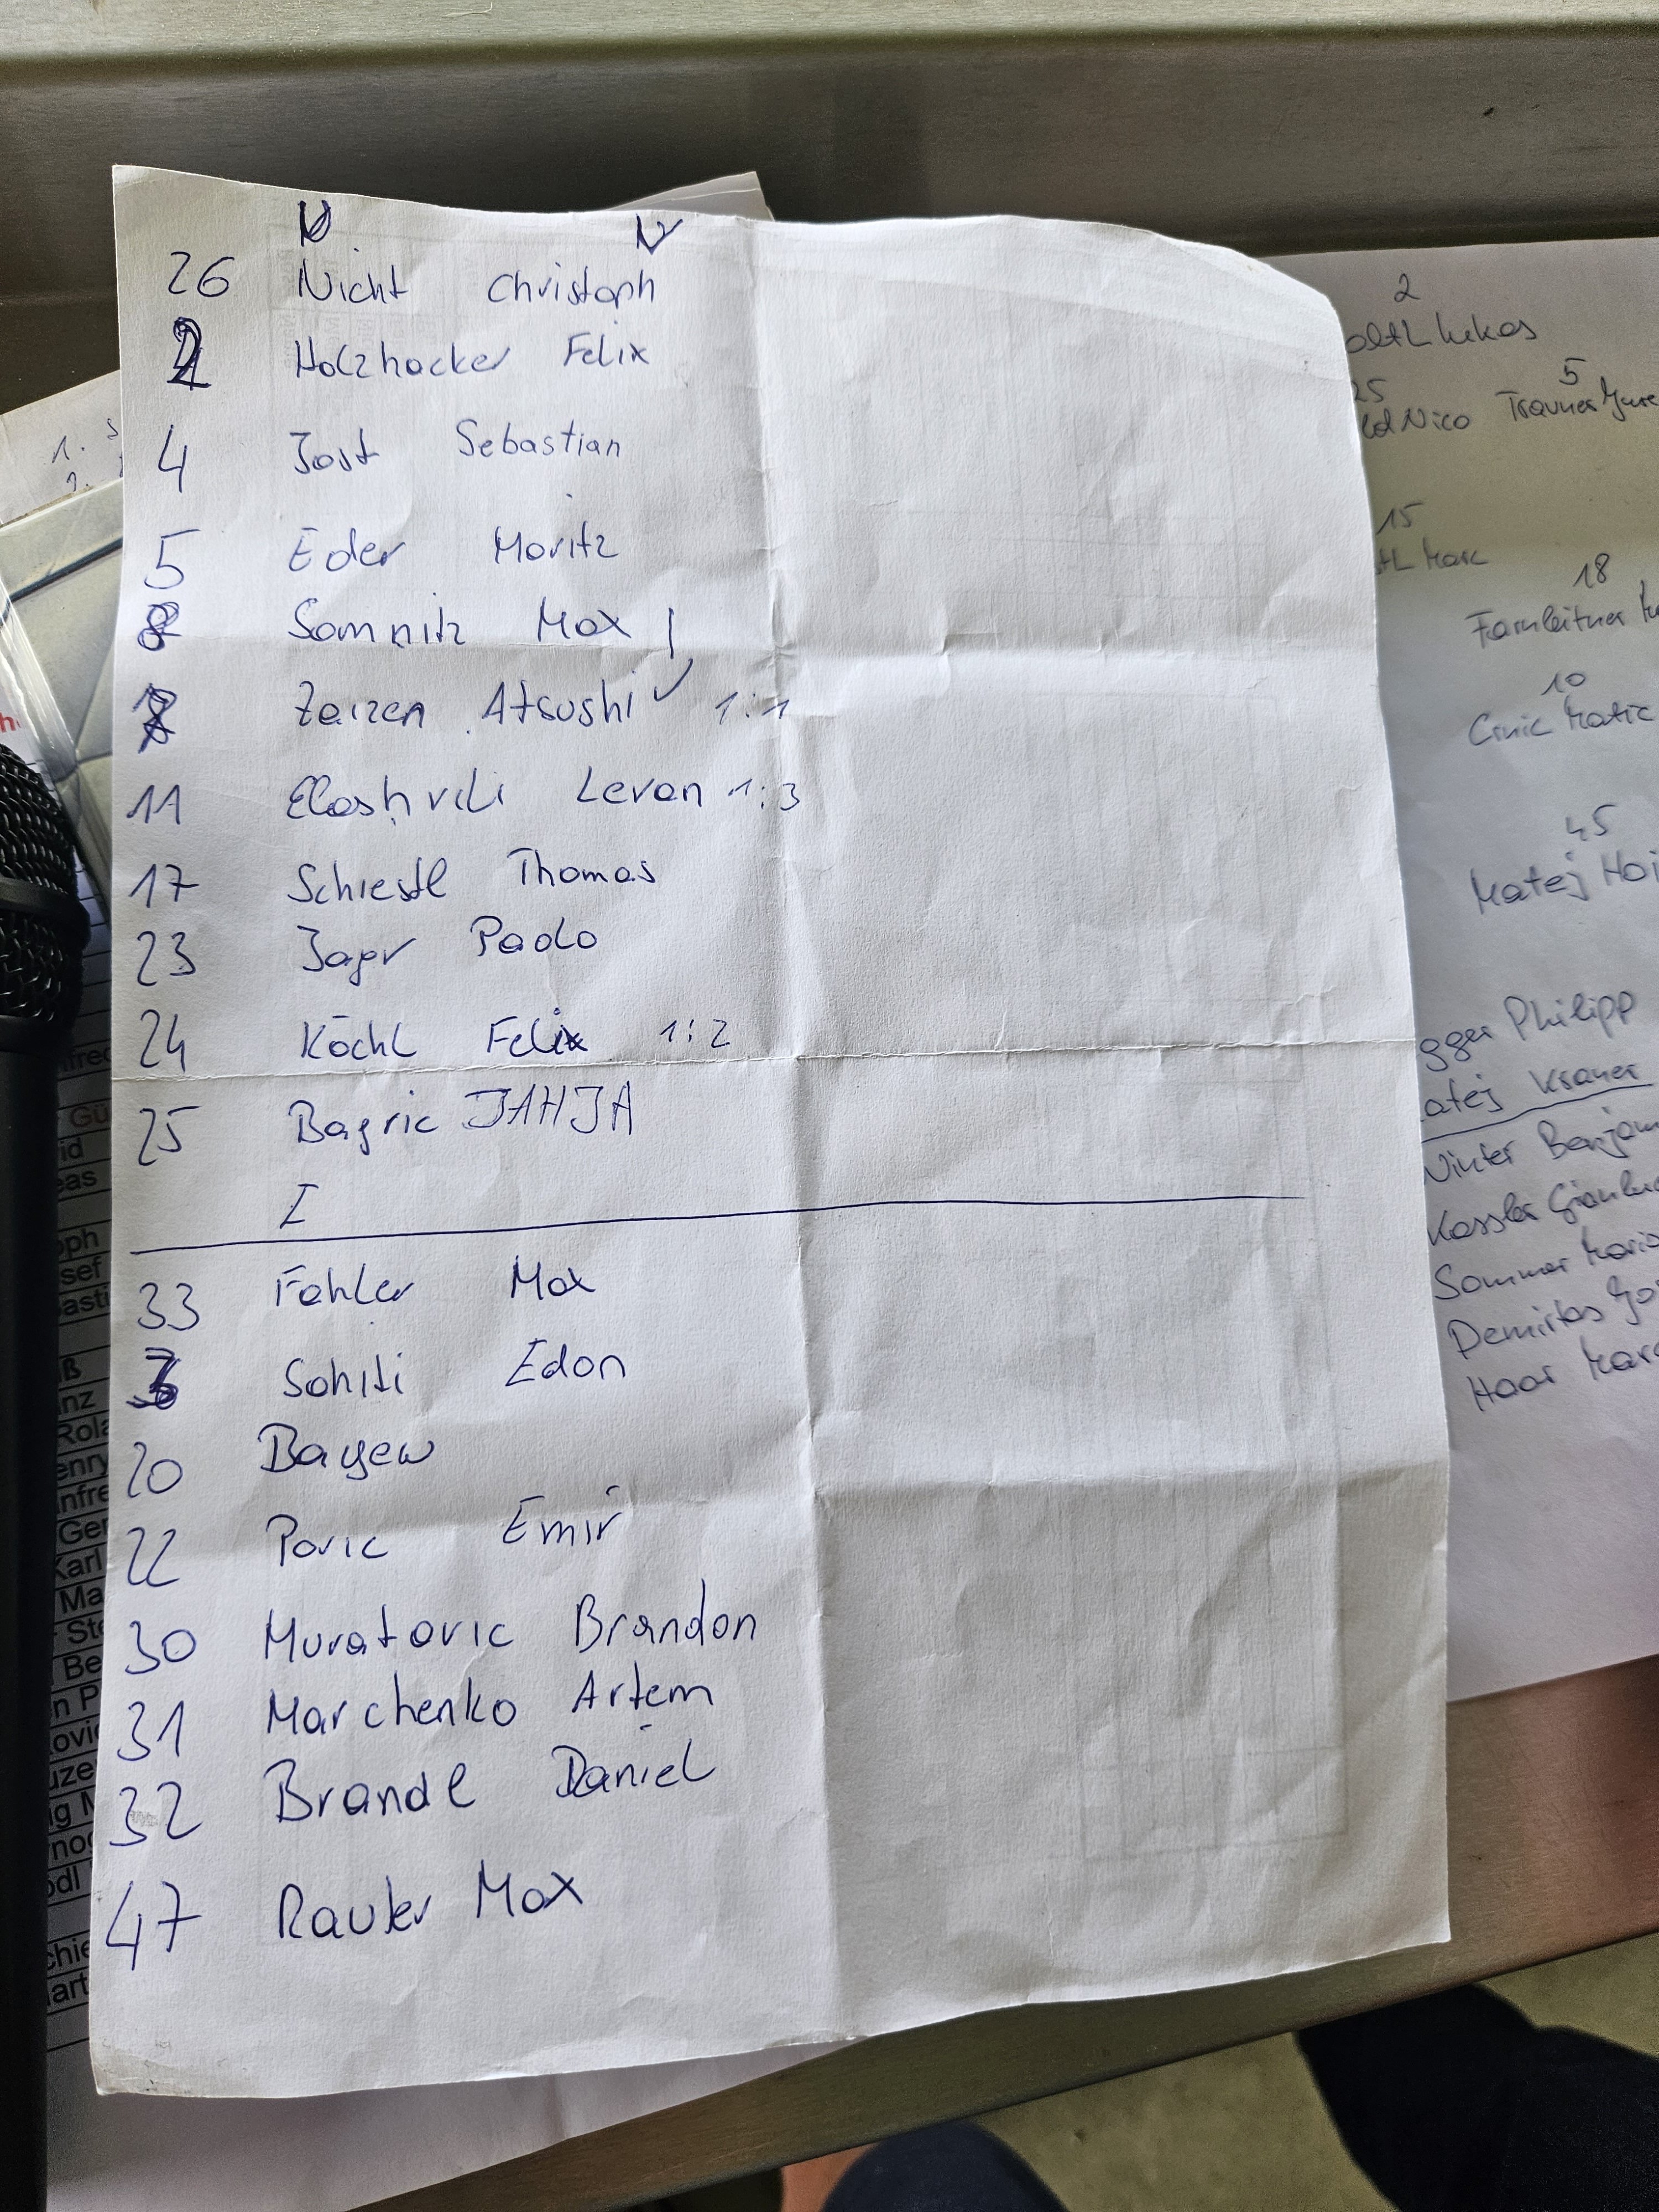 N V
26 Nicht Christoph
2 Holzhacker Felix
4 Jost Sebastian
5 Eder Moritz
8 Somnitz Max
7 Zaizen Atsushi ✓ 1:1
11 Elashvili Levan 1:3
17 Schiestl Thomas
23 Jager Paolo
24 Köchl Felix 1:2
25 Bagric JAHJA
I
33 Fahler Max
3 Sohiti Edon
20 Bayew
22 Poric Emir
30 Muratovic Brandon
31 Marchenko Artem
32 Brandl Daniel
47 Rauter Max
2
Lukas
25 5
Nico Trauner
15
Marc
18
Farnleitner
10
Cinic Matic
45
Matej
gger Philipp
atej Kraner
Winter Benjam
Kassler Gianluc
Sommer Mario
Demirtas
Haar Marc
1.
2.
Gü
oph
sef
asti
nz
Rola
enry
nfre
Ger
Karl
Ma
Ste
Be
n P
ovic
uze
g M
odl